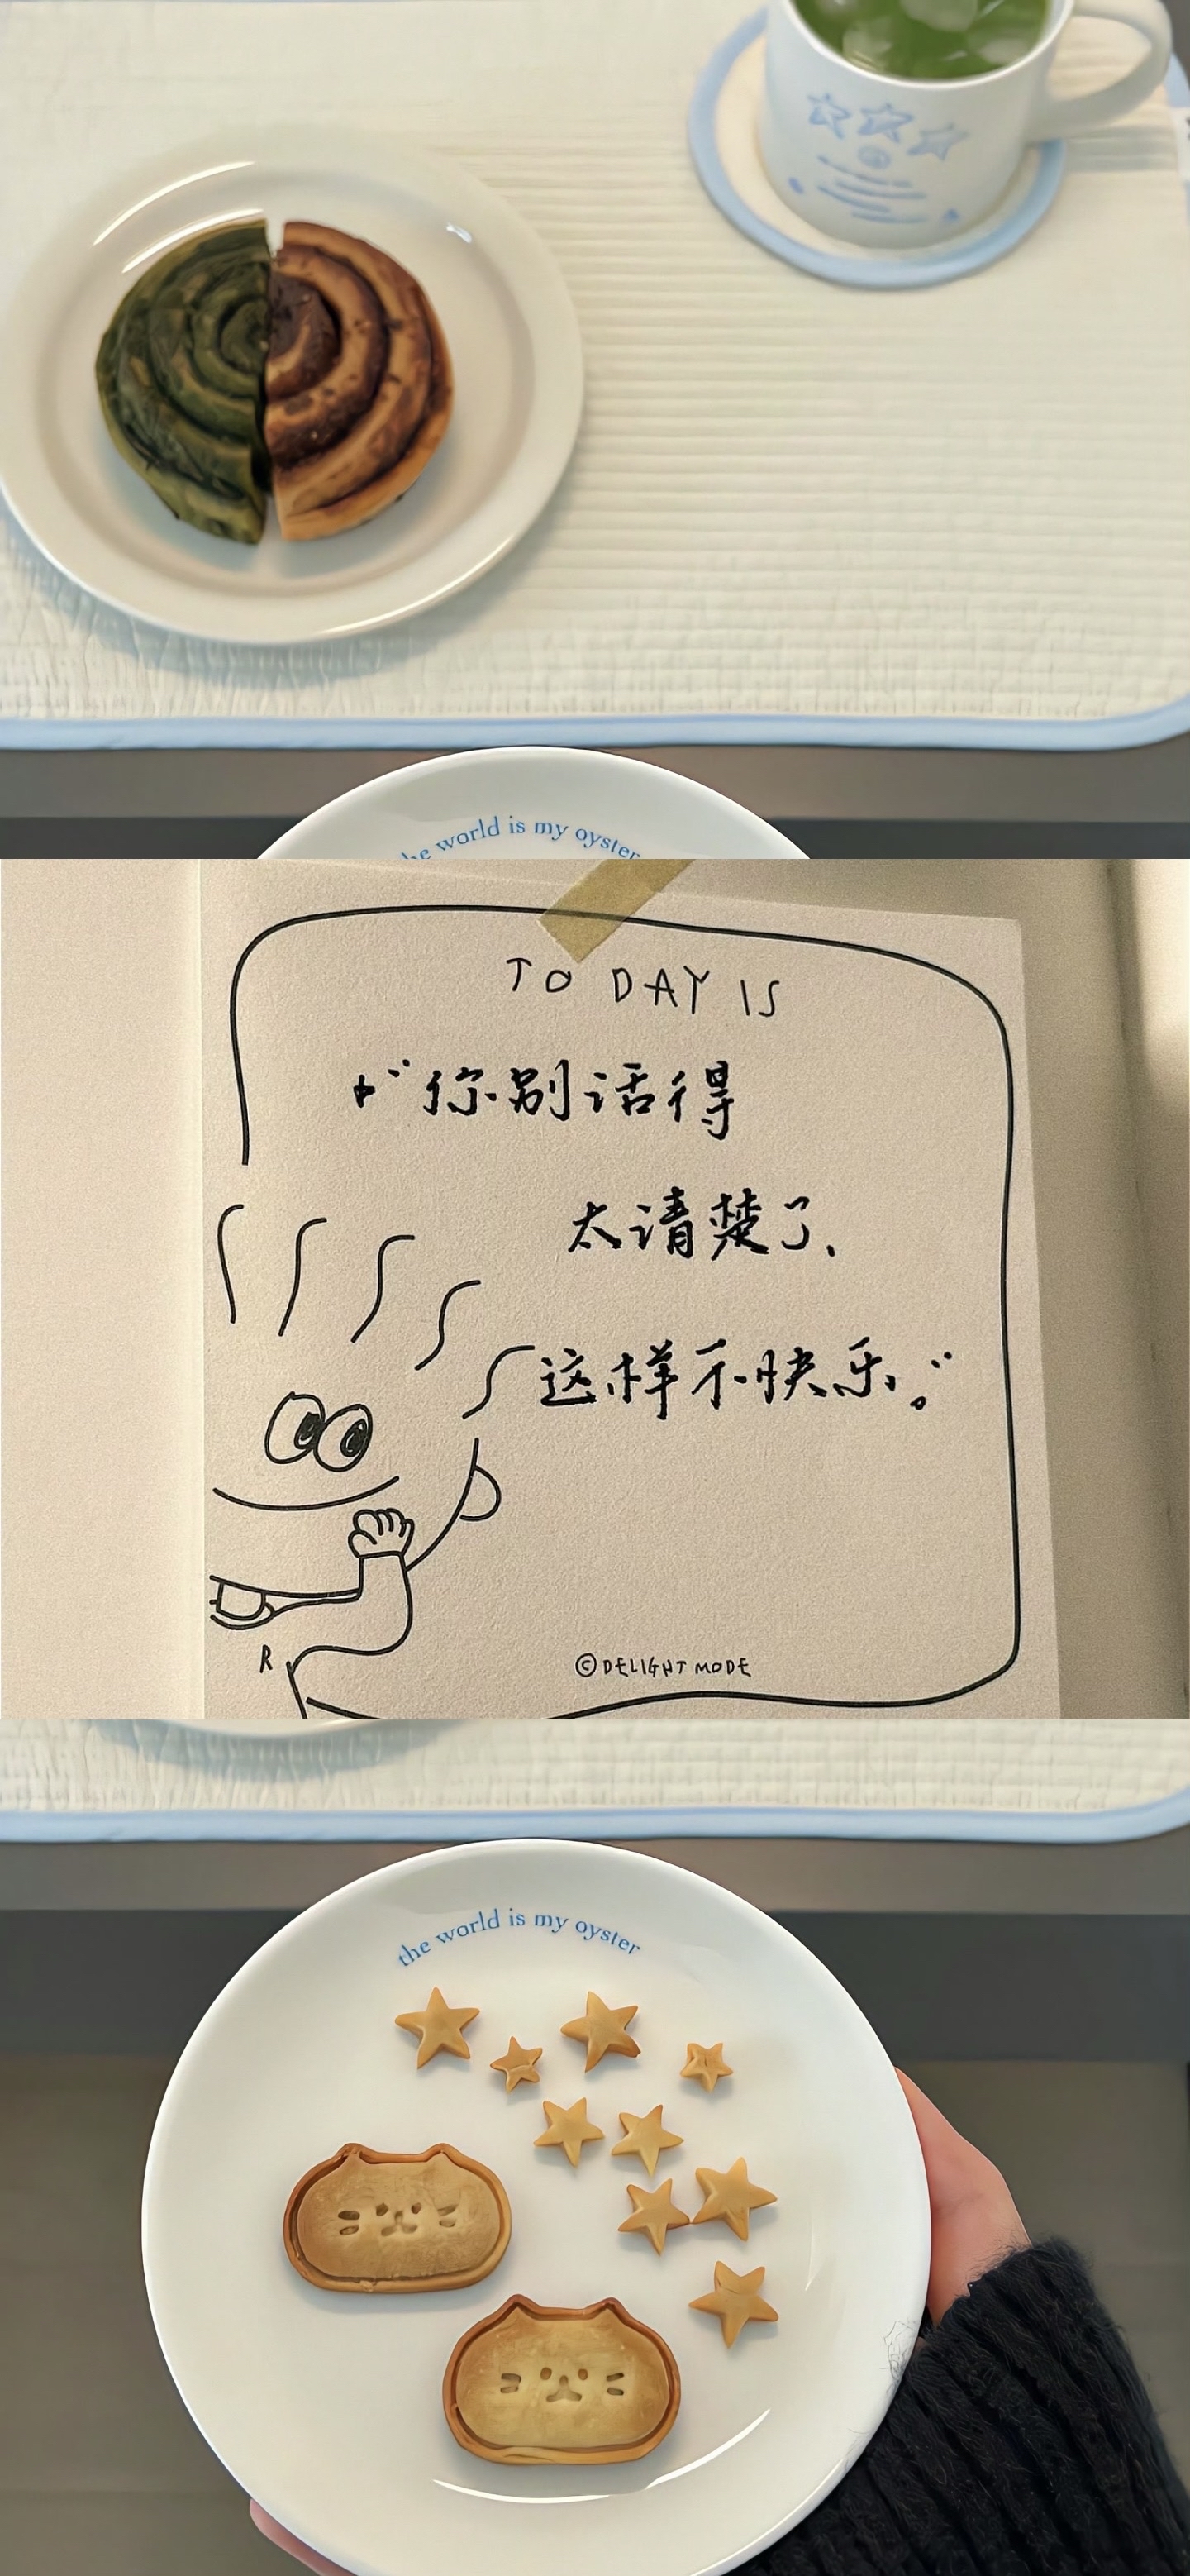 he world is my oyster
TO DAY IS
“你别活得
太清楚了、
这样不快乐。”
R
© DELIGHT MODE
the world is my oyster